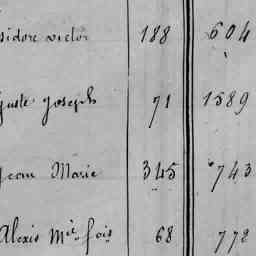 sidore victor 188 604
juste joseph 71 1589
jean Marie 345 743
Alexis Mie fois 68 772